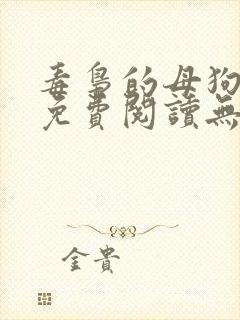 毒梟的母狗
免費閱讀無
金貴